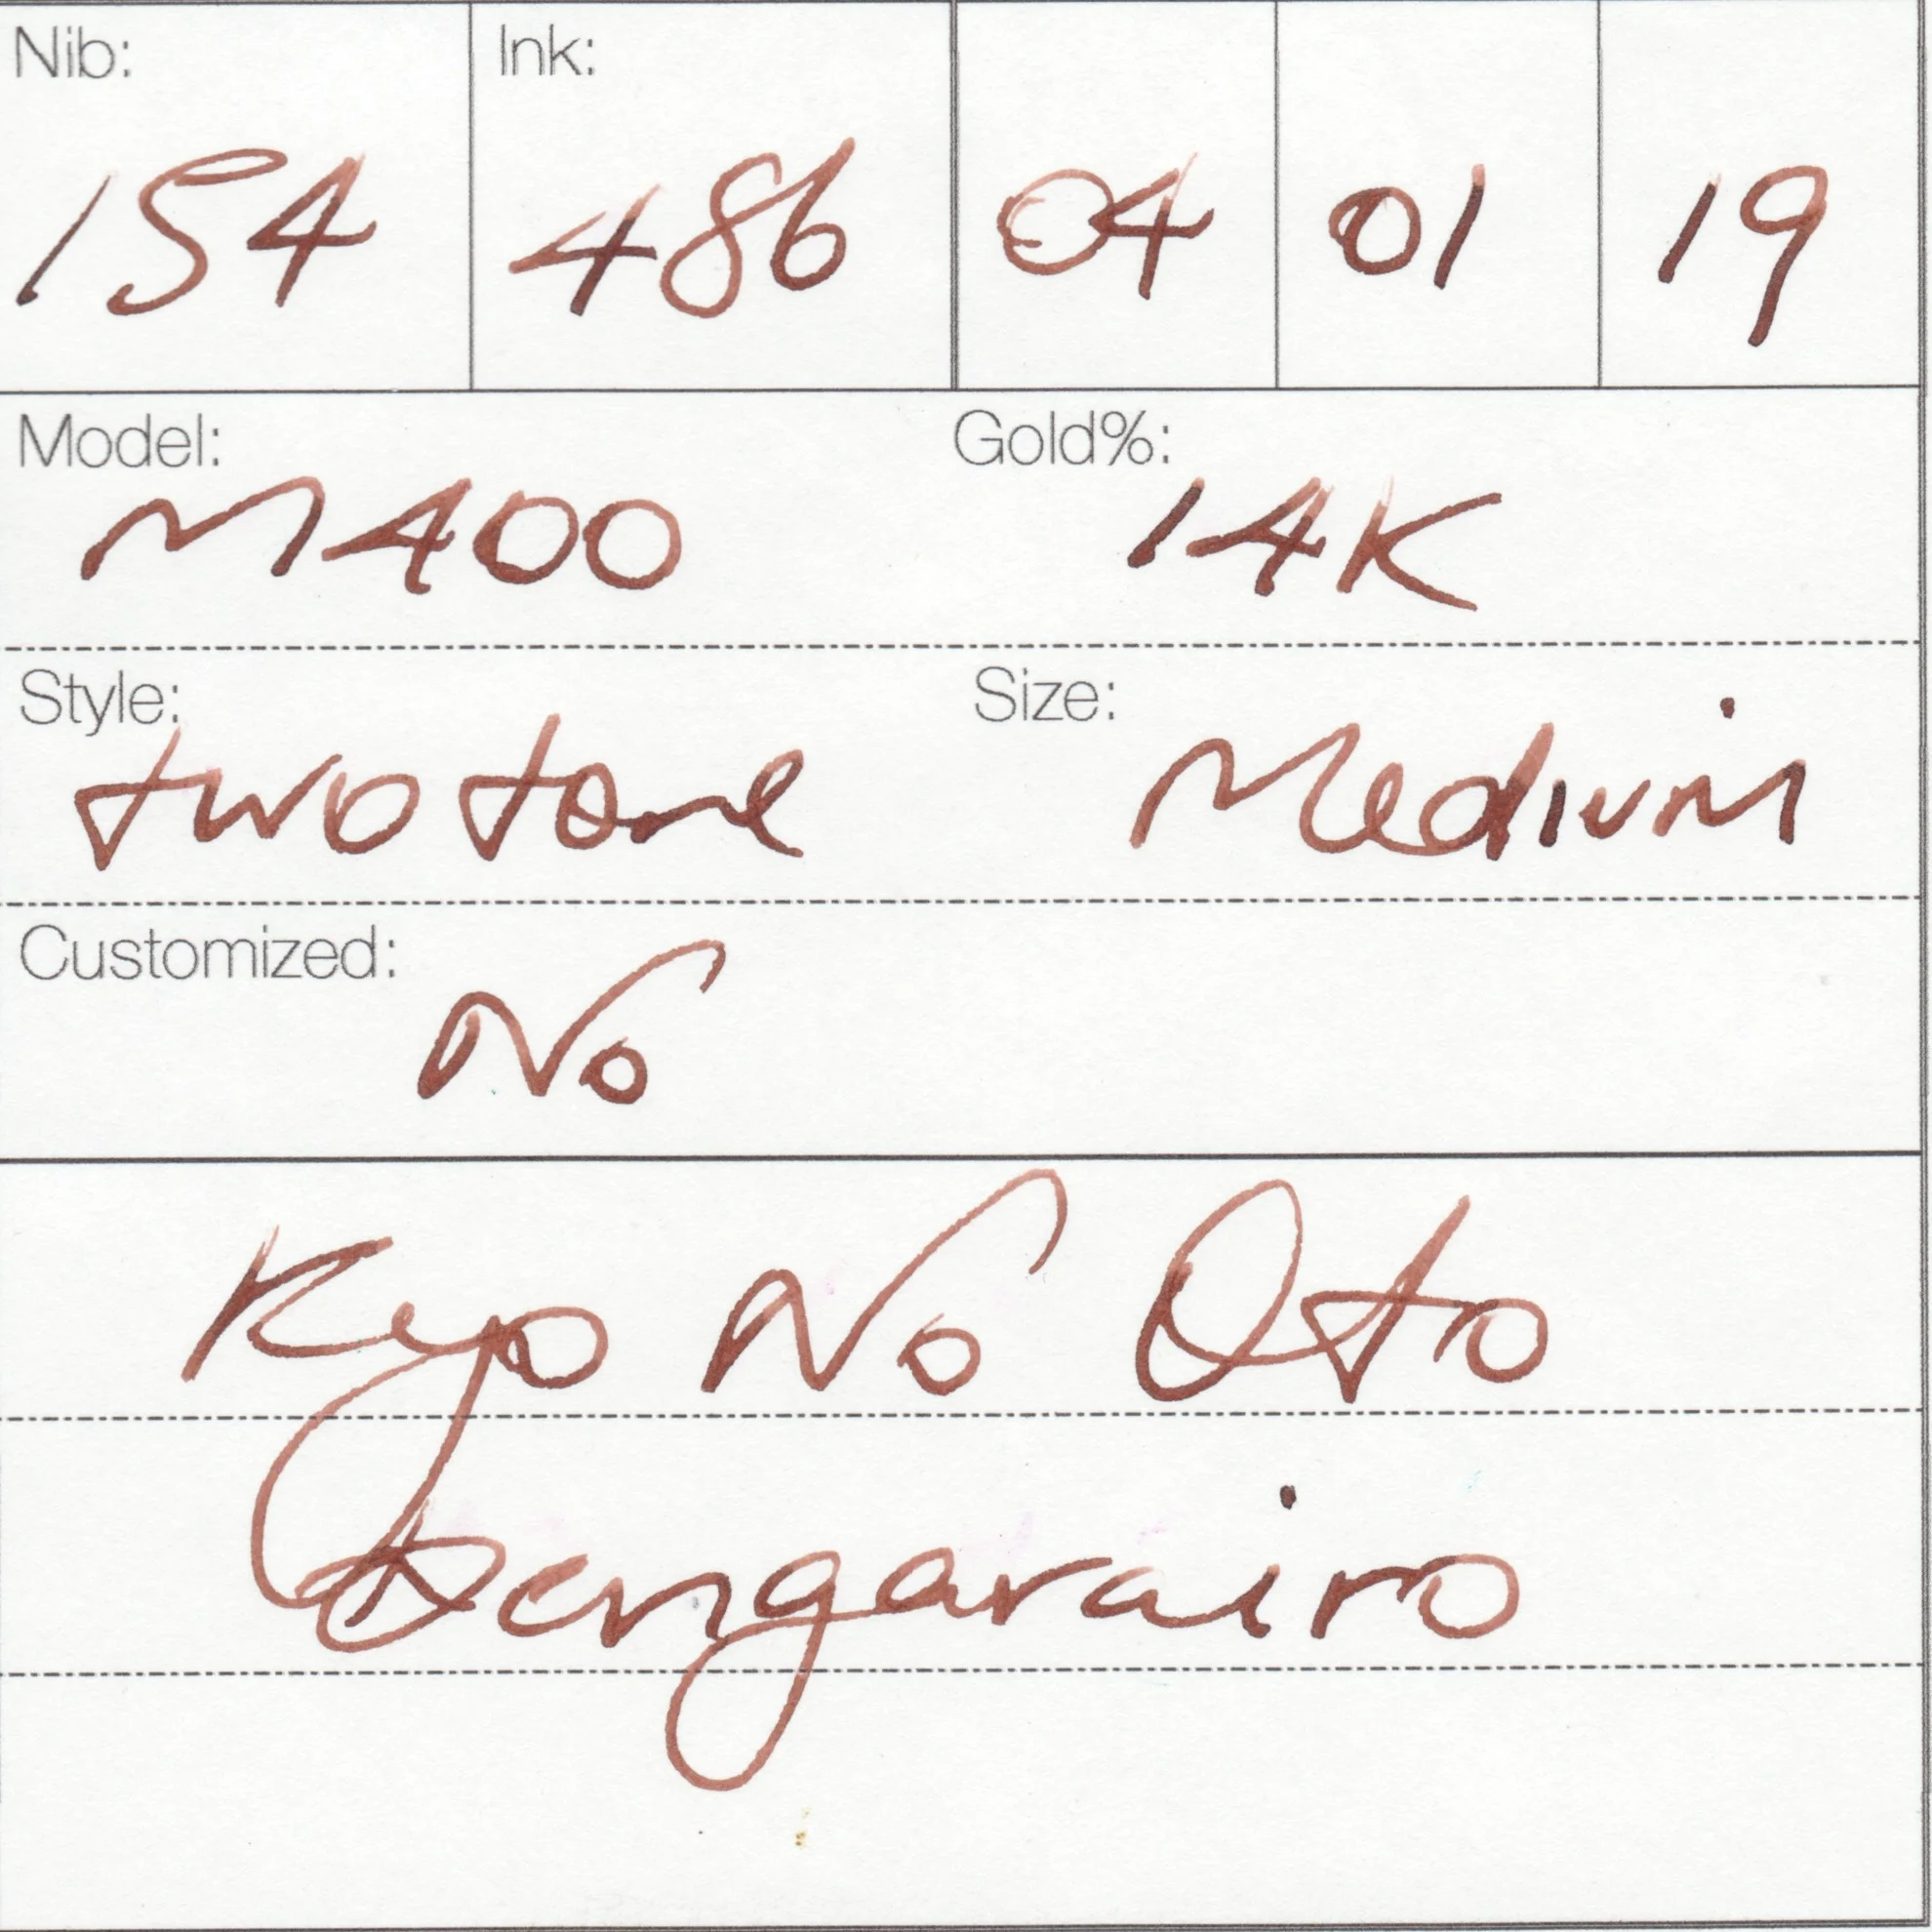 Nib: Ink:
154 486 04 01 19
Model: Gold%:
M400 14K
Style: Size:
two tone Medium
Customized:
No
Kyo No Oto
Bengarairo